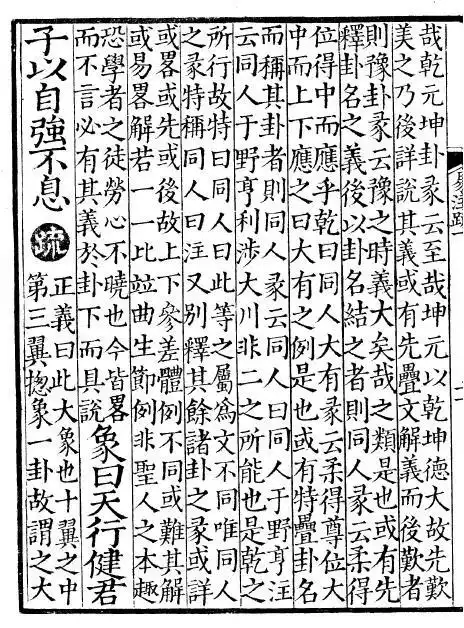 哉乾元坤卦彖云至哉坤元以乾坤德大故先歎
美之乃後詳說其義或有先疊文解義而後歎者
則豫卦彖云豫之時義大矣哉之類是也或有先
釋卦名之義後以卦名結之者則同人彖云柔得
位得中而應乎乾曰同人大有彖云柔得尊位大
中而上下應之曰大有之例是也或有特疊卦名
而稱其卦者則同人彖云同人曰同人于野亨注
云同人于野亨利涉大川非二之所能也是乾之
所行故特曰同人曰此等之屬爲文不同唯同人
之彖特稱同人曰注又別釋其餘諸卦之彖或詳
或畧或先或後故上下參差體例不同或難其解
或易畧解若一一比竝曲生節例非聖人之本趣
恐學者之徒勞心不曉也今皆畧
而不言必有其義於卦下而具說
象曰天行健君
子以自強不息 疏
正義曰此大象也十翼之中
第三翼揔象一卦故謂之大